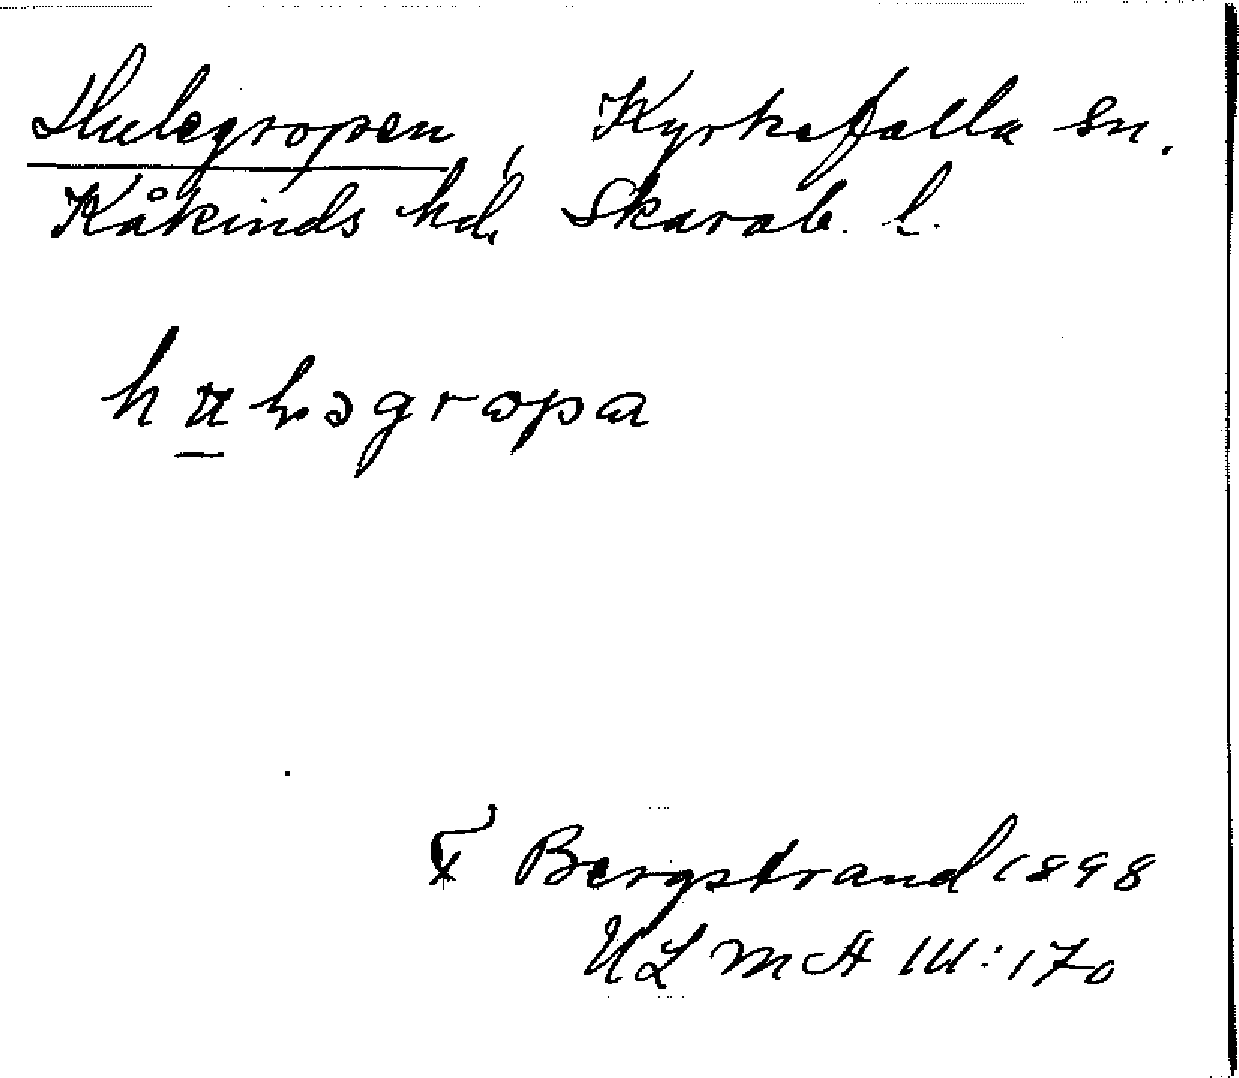 Hulegropen, Kyrkefalla sn.
Kåkinds hd, Skarab. l.
hulsəgropa
Bergstrand 1898
ULMA III:170